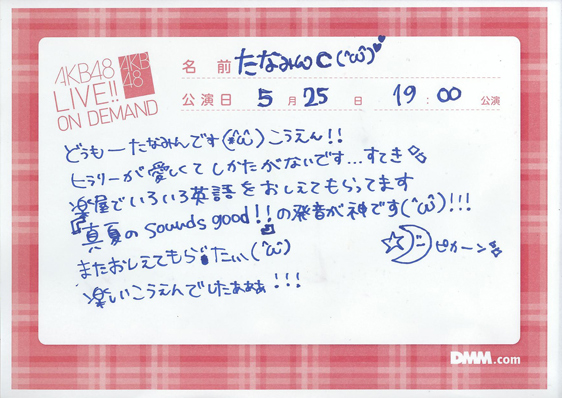 AKB48
LIVE!!
ON DEMAND
AKB
48
名 前 たなみんC(^ω^)
公演日 5月25日 19:00 公演
どうもーたなみんです(^ω^)こうえん!!
ヒラリーが愛しくてしかたがないです...すてき
楽屋でいろいろ英語をおしえてもらってます
『真夏のsounds good!!』の発音が神です(^ω^)!!!
またおしえてもらいたい(^ω^)
ピカーン
楽しいこうえんでしたぁぁぁ!!!
DMM.com